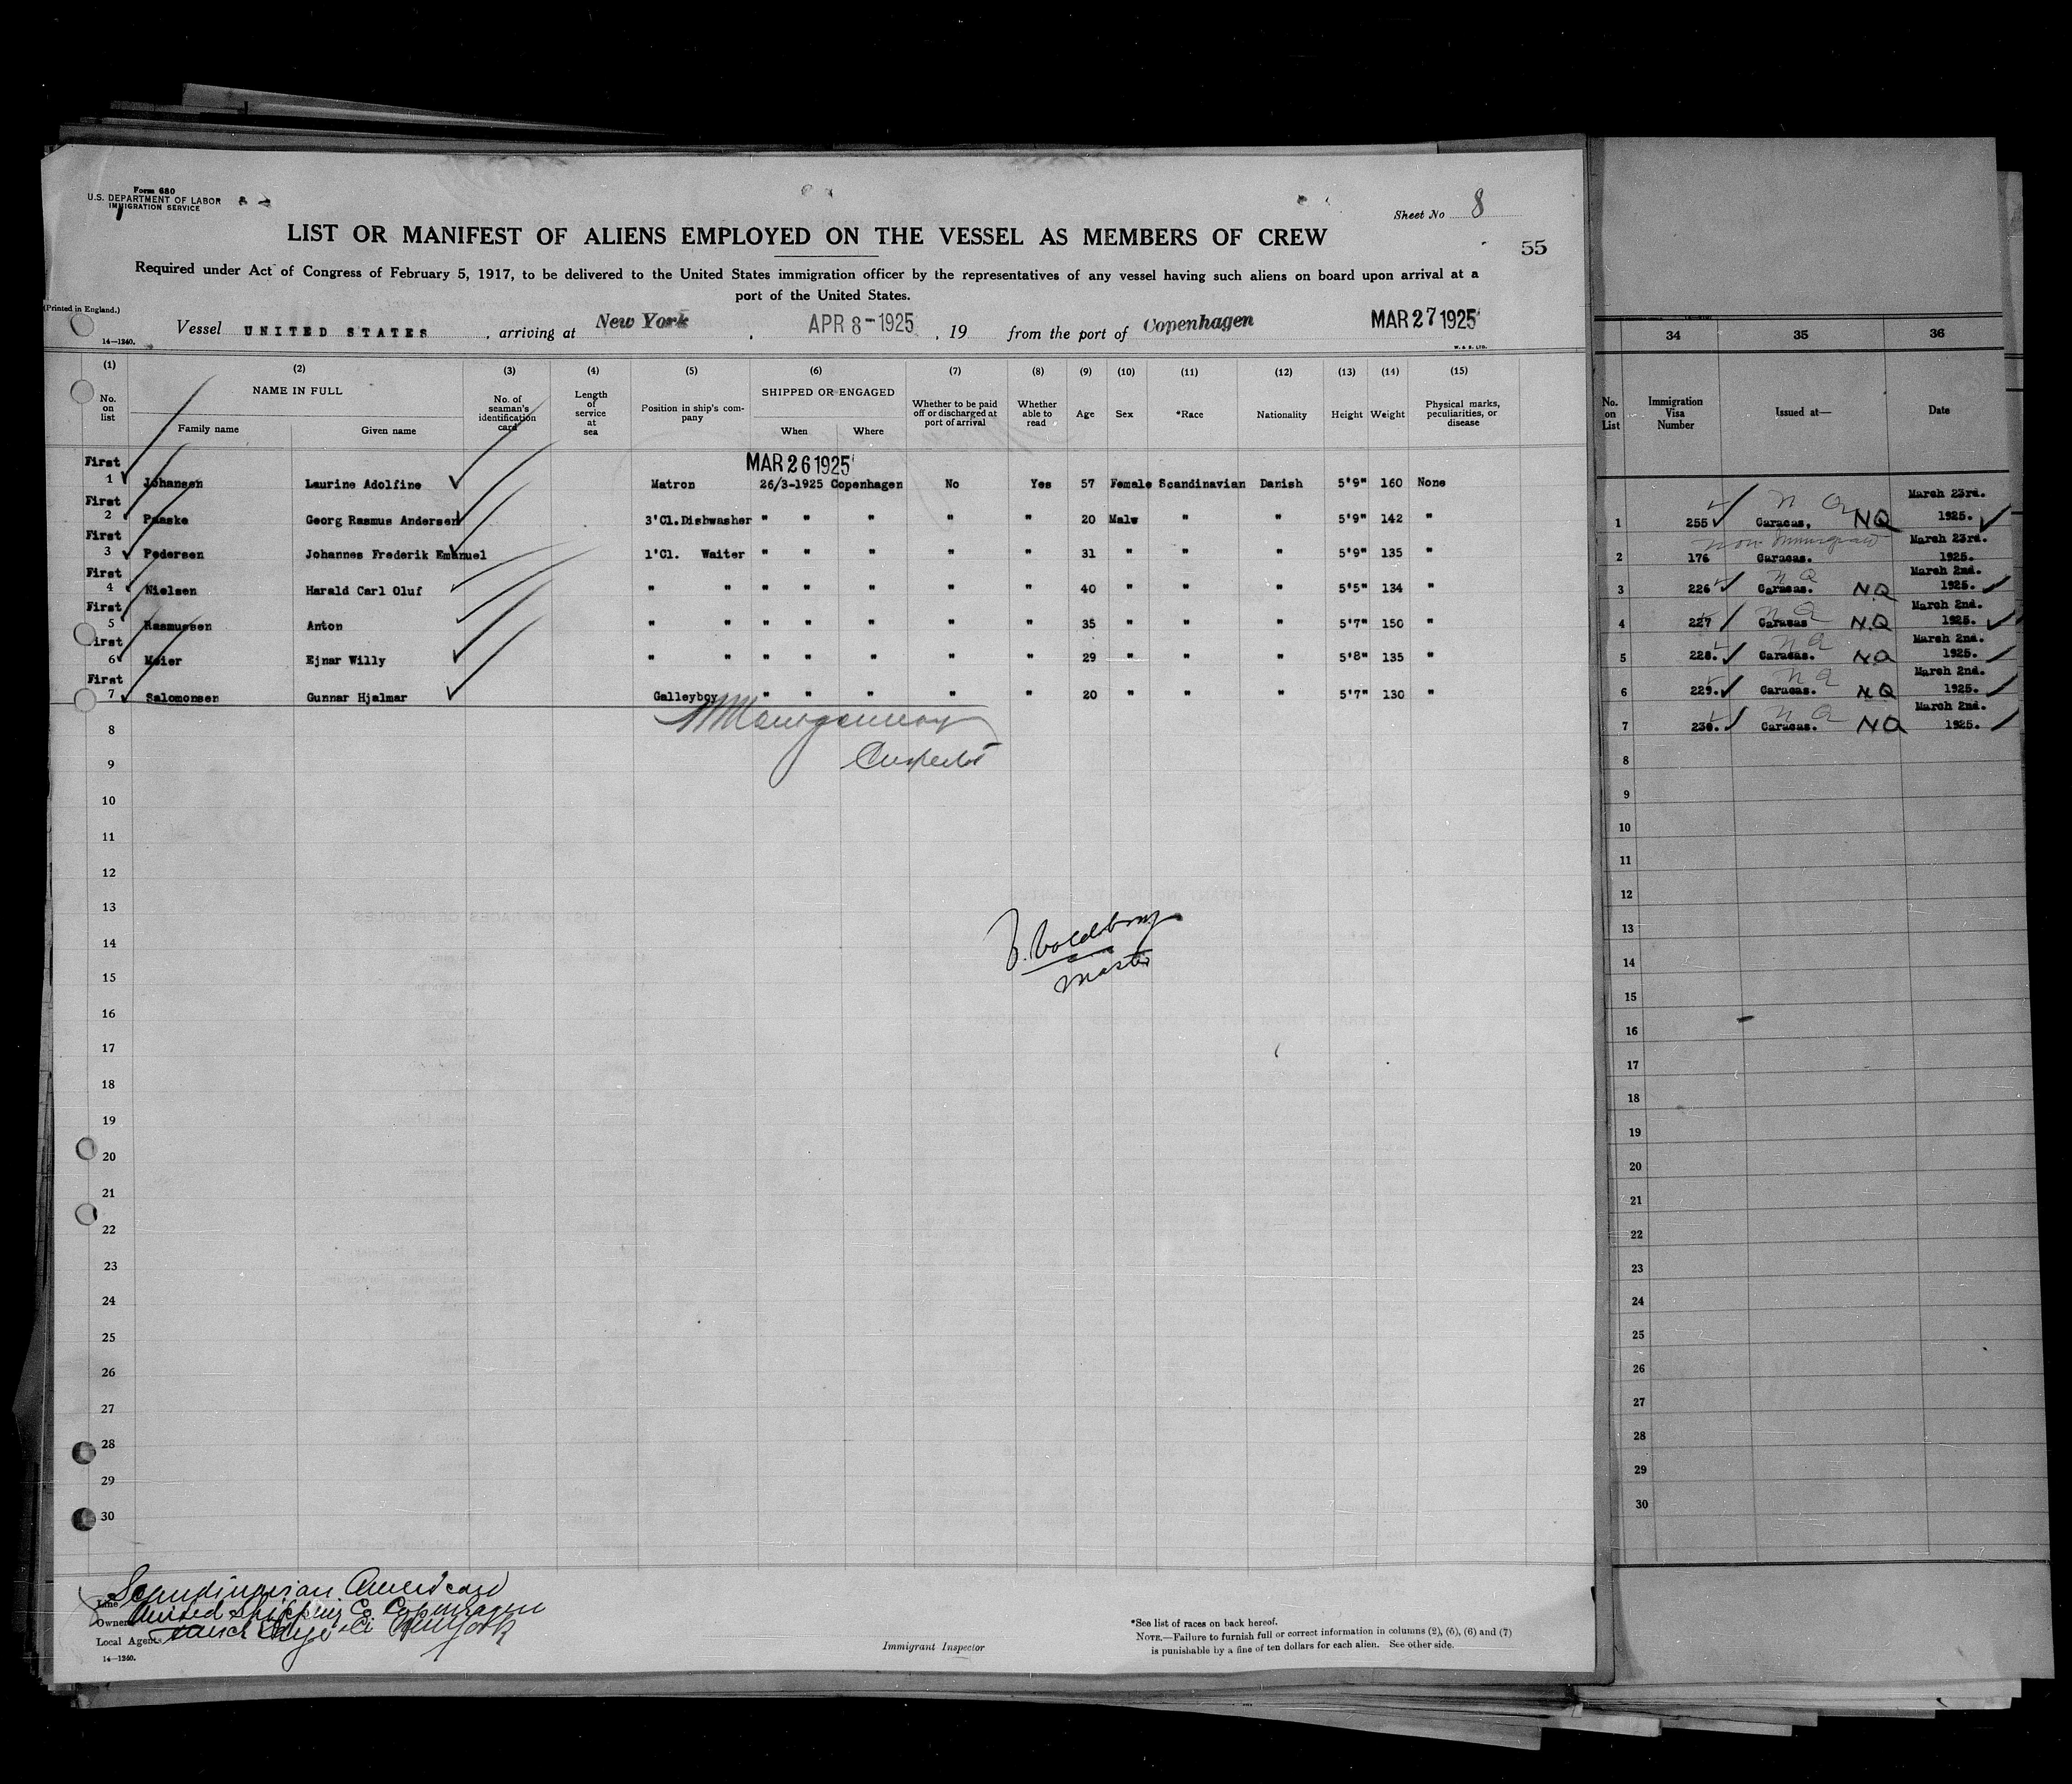 Form 680
U.S. DEPARTMENT OF LABOR
IMMIGRATION SERVICE
Sheet No 8
LIST OR MANIFEST OF ALIENS EMPLOYED ON THE VESSEL AS MEMBERS OF CREW
55
Required under Act of Congress of February 5, 1917, to be delivered to the United States immigration officer by the representatives of any vessel having such aliens on board upon arrival at a
port of the United States.
(Printed in England.)
Vessel UNITED STATES, arriving at New York, APR 8-1925, 19 from the port of Copenhagen MAR 27 1925
14—1240.
W. & S. LTD.
(1) (2) (3) (4) (5) (6) (7) (8) (9) (10) (11) (12) (13) (14) (15)
No. on list NAME IN FULL Family name Given name No. of seaman's identification card Length of service at sea Position in ship's company SHIPPED OR ENGAGED When Where Whether to be paid off or discharged at port of arrival Whether able to read Age Sex *Race Nationality Height Weight Physical marks, peculiarities, or disease
MAR 26 1925
First
1 Johansen Laurine Adolfine Matron 26/3-1925 Copenhagen No Yes 57 Female Scandinavian Danish 5'9" 160 None
First
2 Paaske Georg Rasmus Andersen 3'Cl.Dishwasher " " " " " 20 Male " " 5'9" 142 "
First
3 Pedersen Johannes Frederik Emanuel 1'Cl. Waiter " " " " " 31 " " " 5'9" 135 "
First
4 Nielsen Harald Carl Oluf " " " " " " " 40 " " " 5'5" 134 "
First
5 Rasmussen Anton " " " " " " " 35 " " " 5'7" 150 "
First
6 Meier Ejnar Willy " " " " " " " 29 " " " 5'8" 135 "
First
7 Salomonsen Gunnar Hjalmar Galleyboy " " " " " 20 " " " 5'7" 130 "
8
Inspector
9
10
11
12
13
14
Master
15
16
17
18
19
20
21
22
23
24
25
26
27
28
29
30
Scandinavian American
Line
Owners United Shipping Co Copenhagen
Local Agents New York
14—1240.
Immigrant Inspector
*See list of races on back hereof.
NOTE.—Failure to furnish full or correct information in columns (2), (5), (6) and (7)
is punishable by a fine of ten dollars for each alien. See other side.
34 35 36
No. on List Immigration Visa Number Issued at— Date
N Q March 23rd.
1 255 Caracas, NQ 1925.
Non Immigrant March 23rd.
2 176 Caracas. 1925.
N Q March 2nd.
3 226 Caracas. N.Q 1925.
N Q March 2nd.
4 227 Caracas N.Q 1925.
N Q March 2nd.
5 228. Caracas. NQ 1925.
N Q March 2nd.
6 229. Caracas. NQ 1925.
N Q March 2nd.
7 230. Caracas. NQ 1925.
8
9
10
11
12
13
14
15
16
17
18
19
20
21
22
23
24
25
26
27
28
29
30